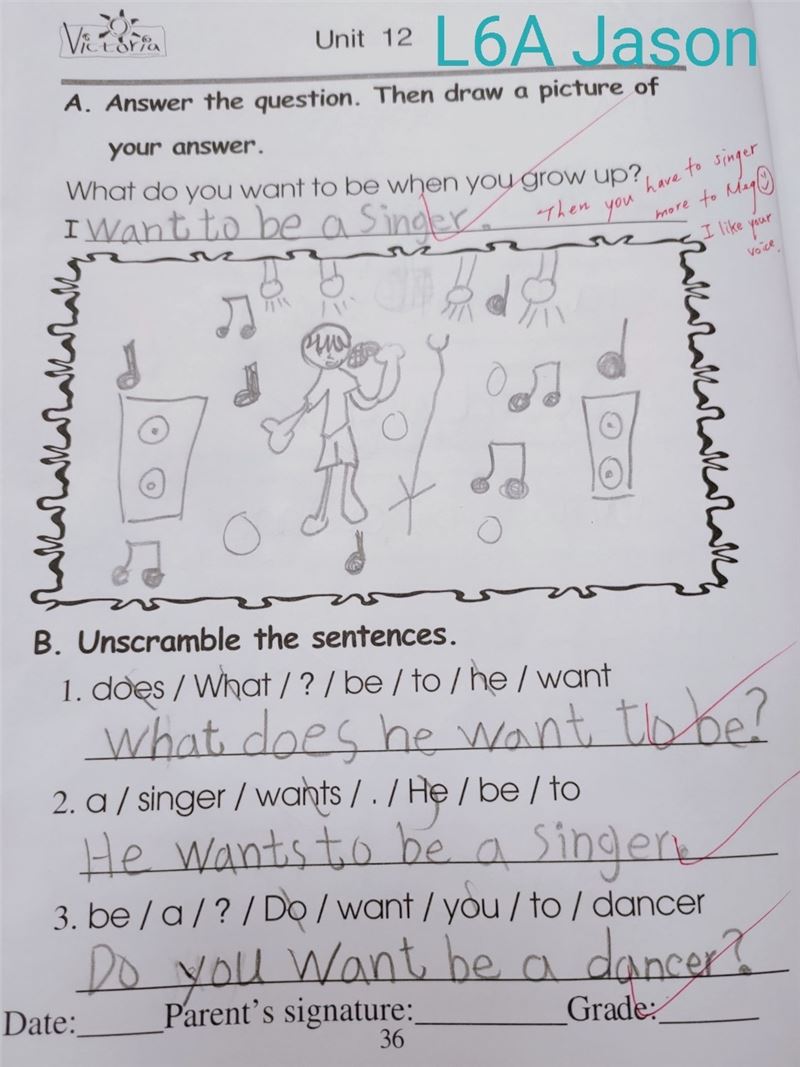 Victoria
Unit 12
L6A Jason
A. Answer the question. Then draw a picture of
your answer.
What do you want to be when you grow up?
I want to be a singer.
Then you have to singer
more to Meg
I like your
voice.
B. Unscramble the sentences.
1. does / What / ? / be / to / he / want
What does he want to be?
2. a / singer / wants / . / He / be / to
He wants to be a singer.
3. be / a / ? / Do / want / you / to / dancer
Do you want be a dancer?
Date:______Parent's signature:___________Grade:_______
36